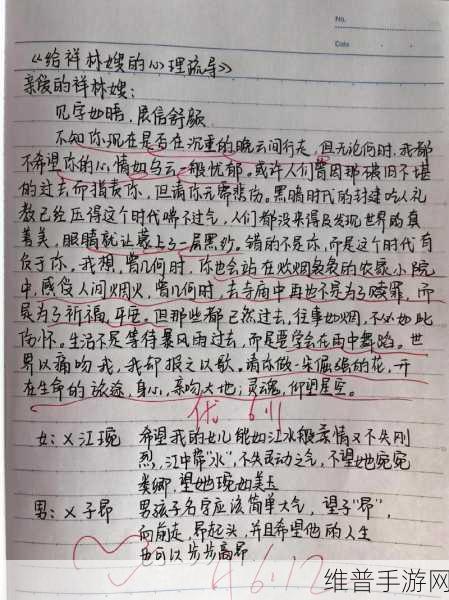 No.
Date
《给祥林嫂的心理疏导》
亲爱的祥林嫂:
见字如晤,展信舒颜
不知你现在是否在沉重的晚云间行走,但无论何时,我都
不希望你的心情如乌云一般忧郁。或许人们曾因那破旧不堪
的过去而指责你,但请你无需悲伤。黑暗时代的封建吃人礼
教已经压得这个时代喘不过气,人们都没来得及发现世界的真
善美,眼睛就让蒙上了一层黑纱。错的不是你,而是这个时代有
负于你,我想,曾几何时,你也会站在炊烟袅袅的农家小院
中,感受人间烟火,曾几何时,去寺庙中再也不是为了赎罪,而
是为了祈福,平安。但那些都已然过去,往事如烟,不必如此
伤怀。生活不是等待暴风雨过去,而是要学会在雨中舞蹈。世
界以痛吻我,我却报之以歌。请你做一朵倔强的花,开
在生命的旅途,身心,亲吻大地;灵魂,仰望星空。
优 6.11
女:X江琬 希望我的女儿能如江水般柔情又不失刚
烈,江中带“水”,不失灵动之气,不望她宛宛
类卿,望她琬如美玉
男:X子昂 男孩子名字应该简单大气,望子“昂”,
向前走,昂起头,并且希望他的人生
也可以步步高昂.
6.12
维普手游网